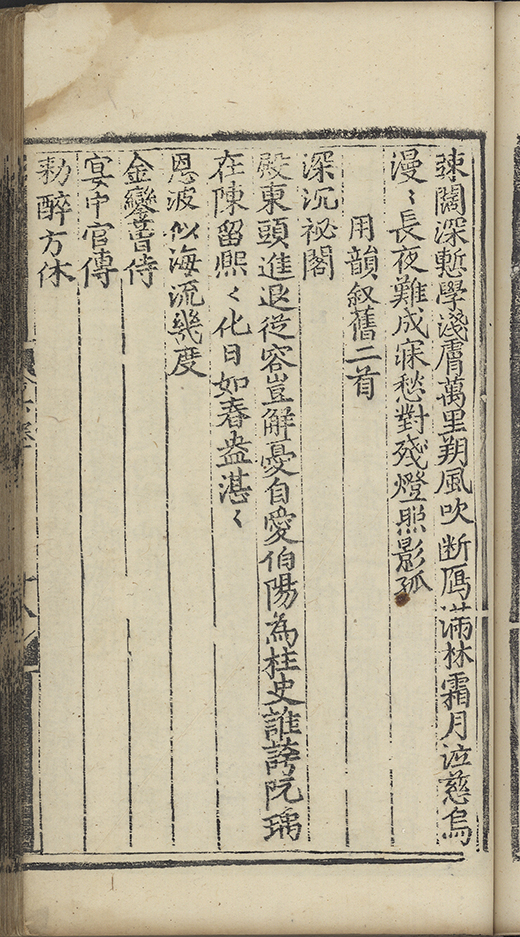 踈闊深慙學淺膚萬里朔風吹断鴈滿林霜月泣慈烏
漫〻長夜難成寐愁對残燈照影孤
用韻叙舊二首
深沉祕閣
殿東頭進退従容豈解憂自愛伯陽為柱史誰誇阮瑀
在陳留熙〻化日如春盎湛〻
恩波似海流幾度
金鑾曾侍
宴中官傳
勑醉方休